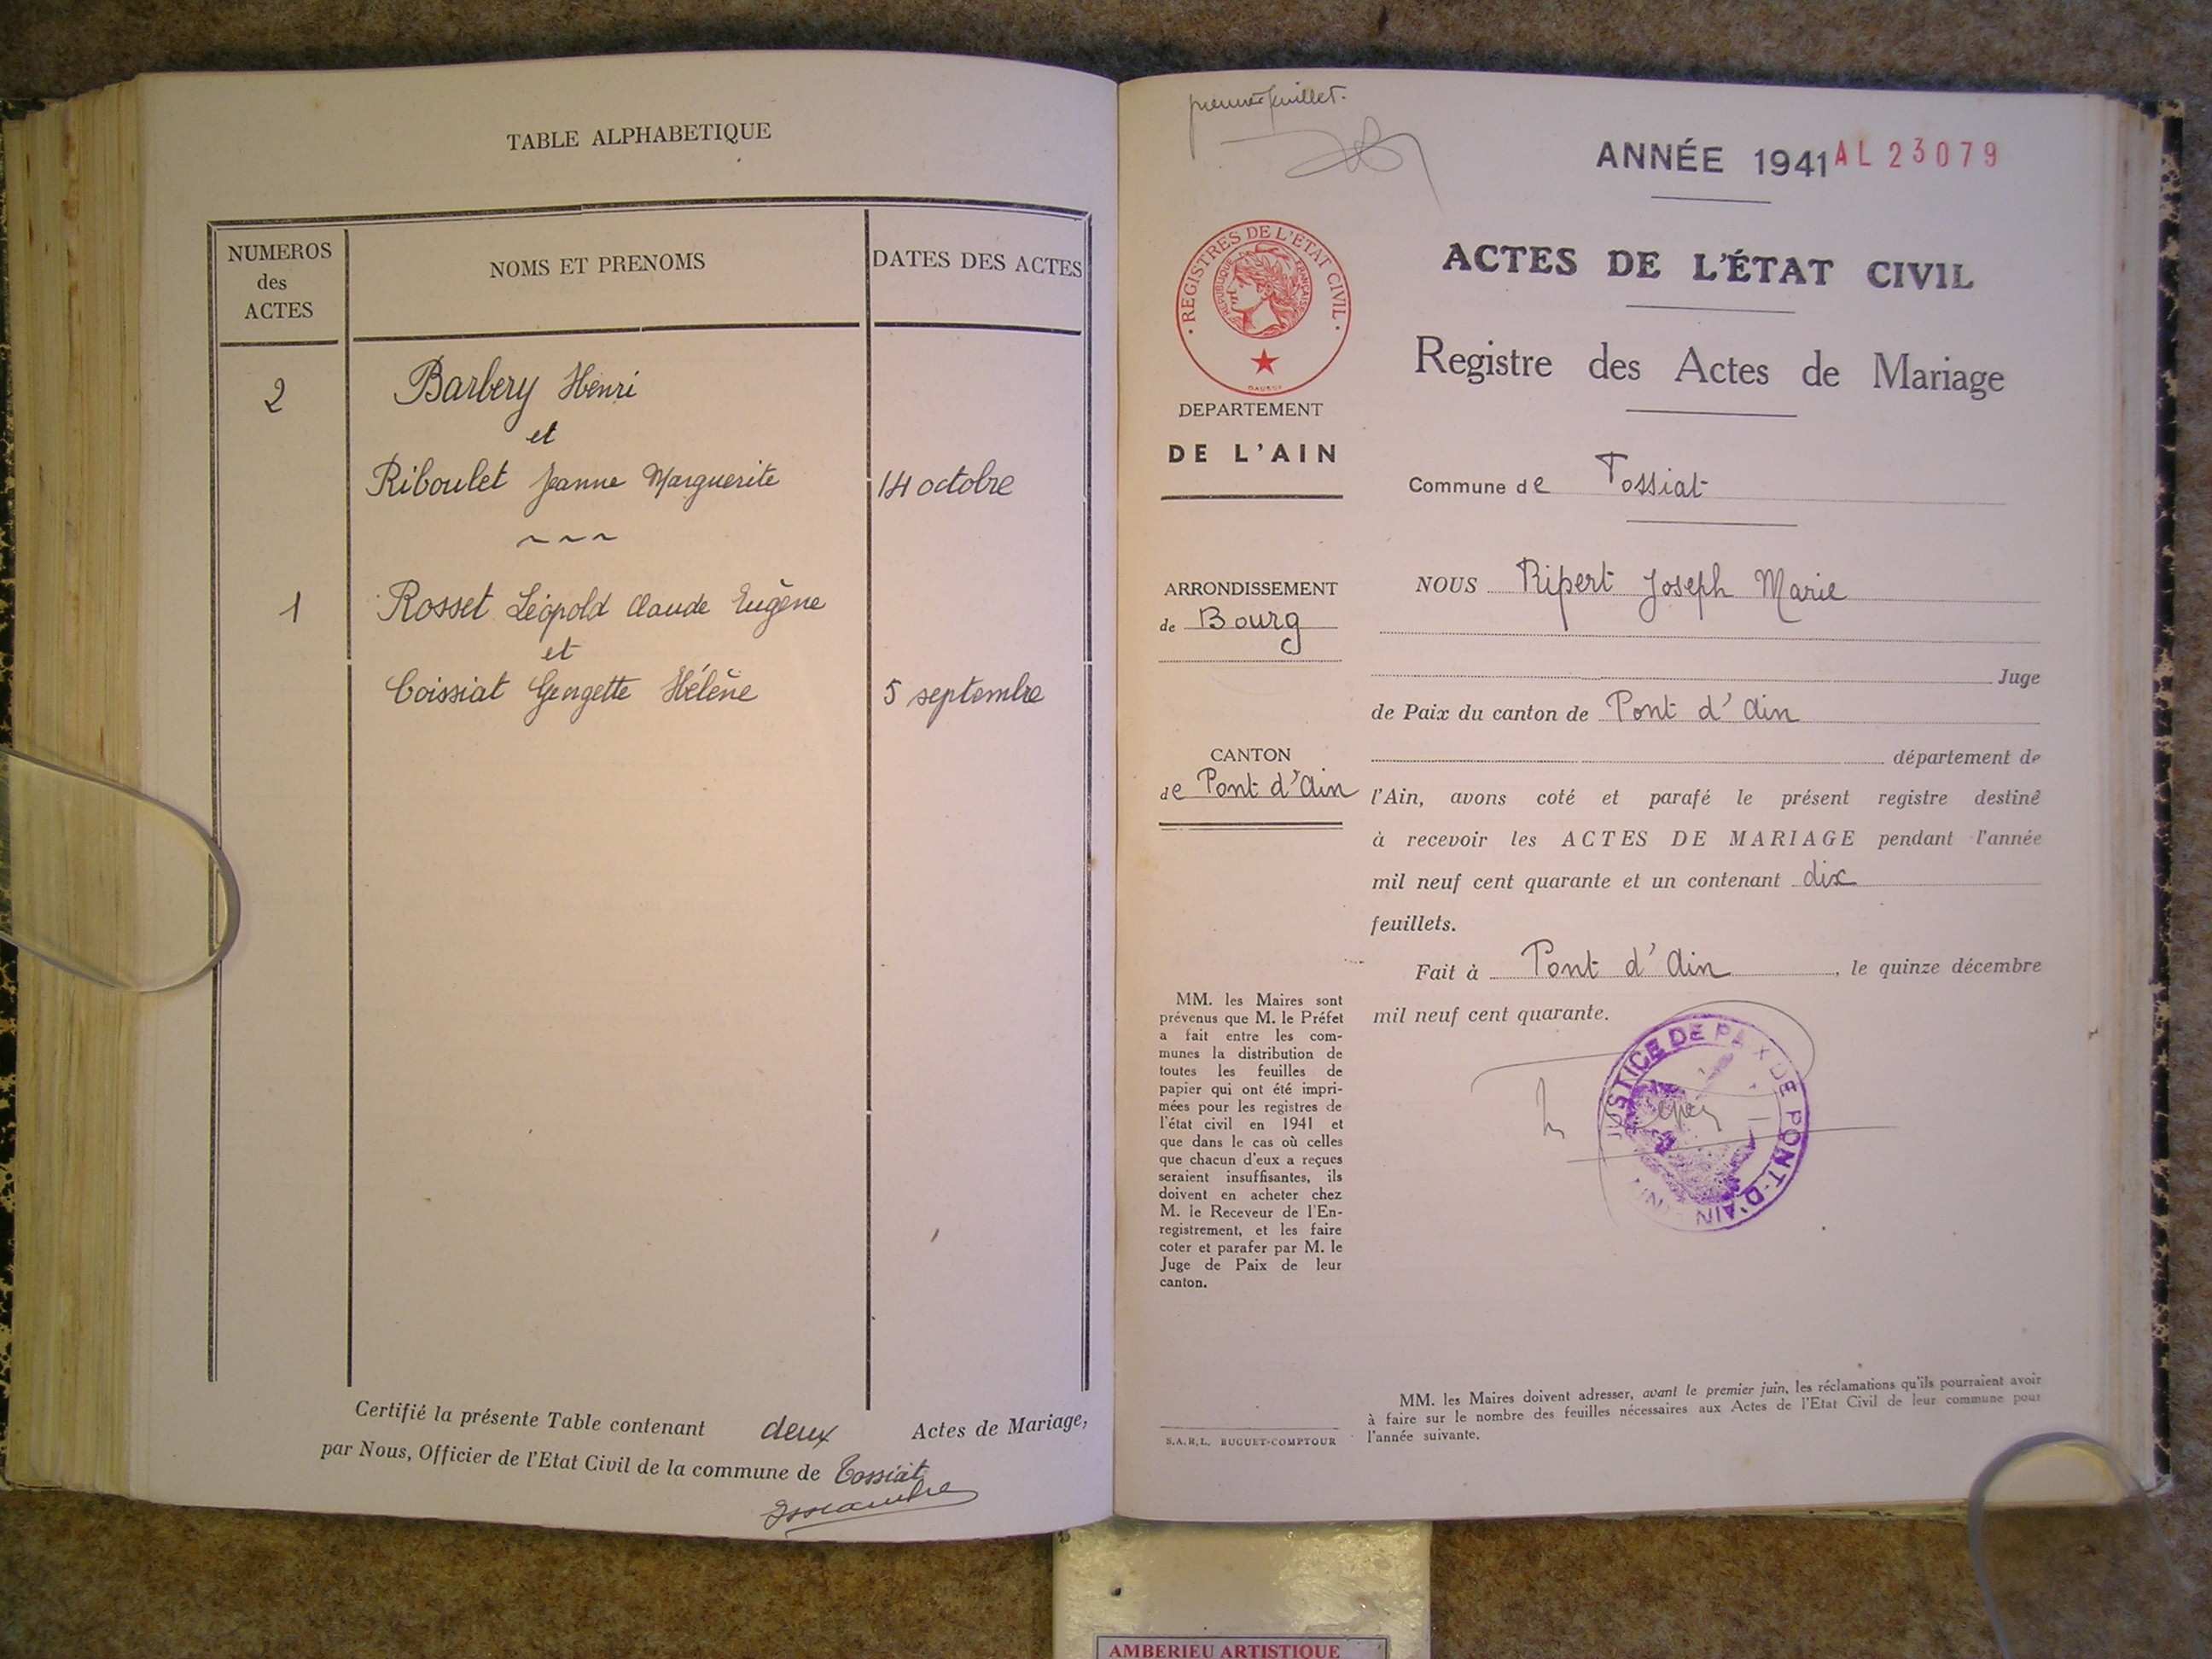 TABLE ALPHABETIQUE
NUMEROS
des
ACTES
NOMS ET PRENOMS
DATES DES ACTES
2
Barbery Henri
et
Riboulet Jeanne Marguerite
14 octobre
~ ~ ~
1
Rosset Léopold Claude Eugène
et
Coissiat Georgette Hélène
5 septembre
Certifié la présente Table contenant deux Actes de Mariage,
par Nous, Officier de l'Etat Civil de la commune de Tossiat
premier feuillet.
ANNÉE 1941 AL 23079
REGISTRES DE L'ETAT CIVIL
REPUBLIQUE FRANÇAISE
ACTES DE L'ÉTAT CIVIL
Registre des Actes de Mariage
DEPARTEMENT
DE L'AIN
Commune de Tossiat
ARRONDISSEMENT
de Bourg
CANTON
de Pont d'Ain
NOUS Ripert Joseph Marie
Juge
de Paix du canton de Pont d'Ain
département de
l'Ain, avons coté et parafé le présent registre destiné
à recevoir les ACTES DE MARIAGE pendant l'année
mil neuf cent quarante et un contenant dix
feuillets.
Fait à Pont d'Ain, le quinze décembre
mil neuf cent quarante.
JUSTICE DE PAIX DE PONT-D'AIN
AIN
MM. les Maires sont
prévenus que M. le Préfet
a fait entre les com-
munes la distribution de
toutes les feuilles de
papier qui ont été impri-
mées pour les registres de
l'état civil en 1941 et
que dans le cas où celles
que chacun d'eux a reçues
seraient insuffisantes, ils
doivent en acheter chez
M. le Receveur de l'En-
registrement, et les faire
coter et parafer par M. le
Juge de Paix de leur
canton.
S.A.R.L. BUGUET-COMPTOUR
MM. les Maires doivent adresser, avant le premier juin, les réclamations qu'ils pourraient avoir
à faire sur le nombre des feuilles nécessaires aux Actes de l'Etat Civil de leur commune pour
l'année suivante.
AMBERIEU ARTISTIQUE